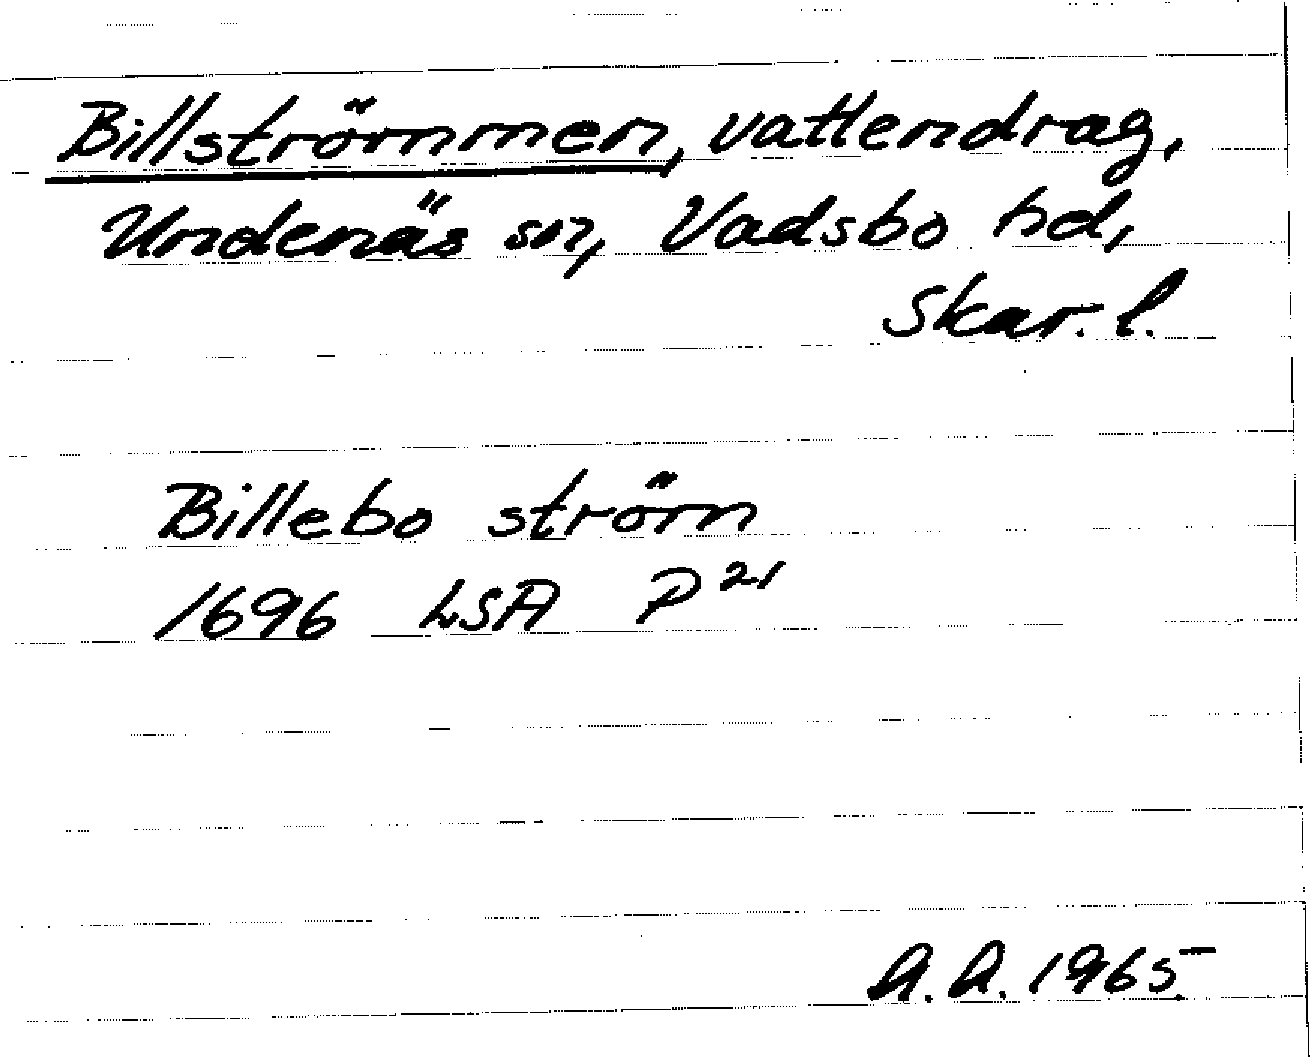 Billströmmen, vattendrag,
Undenäs sn, Vadsbo hd,
Skar. l.
Billebo ström
1696 LSA P 21
A.A. 1965